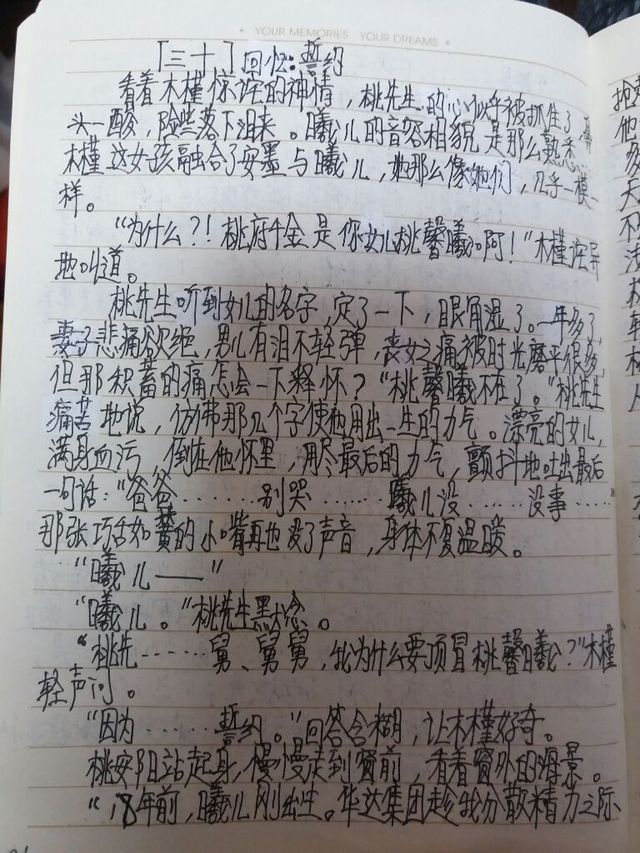 YOUR MEMORIES YOUR DREAMS
[三十] 回忆：誓约
看着木槿惊诧的神情，桃先生的心似乎被抓住了，
头一酸，险些落下泪来。曦儿的音容相貌是那么熟悉，
木槿这女孩融合了安墨与曦儿，她那么像她们，几乎一模一
样。
“为什么？！桃府千金是你女儿桃馨曦啊！”木槿诧异
地叫道。
桃先生听到女儿的名字，定了一下，眼角湿了。一年多了，
妻子悲痛欲绝，男儿有泪不轻弹，丧女之痛被时光磨平很多，
但那积蓄的痛怎会一下释怀？“桃馨曦不在了。”桃先生
痛苦地说，仿佛那几个字使他用出一生的力气。漂亮的女儿，
满身血污，倒在他怀里，用尽最后的力气，颤抖地吐出最后
一句话：“爸爸……别哭……曦儿没……没事……
那张巧舌如簧的小嘴再也没了声音，身体不复温暖。
“曦儿——”
“曦儿。”桃先生默念。
“桃先……舅、舅舅，我为什么要顶冒桃馨曦？”木槿
轻声问。
“因为……誓约。”回答含糊，让木槿好奇。
桃安阳站起身，慢慢走到窗前，看着窗外的海景。
“18年前，曦儿刚出生。华达集团趁我分散精力之际